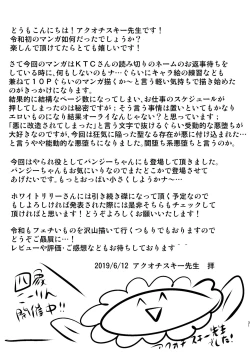 どうもこんにちは！アクオチスキー先生です！
令和初のマンガは如何だったでしょうか？
楽しんで頂けてたらとても嬉しいです！
さて今回のマンガはＫＴＣさんの読み切りのネームのお返事さんを
している時に､何もしないのもナ…ぐらいにキャラ絵の練習なども
兼ねて１０Ｐぐらいのマンガ描くか～と言う軽い気持ちで描き始めた
のがきっかけになります。
結果的に結構なページ数になってしまい､お仕事のスケジュールが
押してしまったのは秘密ですが；そう言う事情は置いといてもかなり
エロいものになり結果オーライなんじゃない？と思っています；
「悪に改造されてしまった」と言う文字で抜ける！ぐらい悪堕ちが
大好きなのですが､今回は狂気に陥った聖なる存在が堕とされた…
と言うやや能動的な悪堕ちになりました。闇堕ち系悪堕ちと言うのか。
今回はやられ役としてパンジーちゃんにも登場して頂きました。
パンジーちゃんもお気にいりなのでまたどこかで登場させて
あげたいです。もっとおっぱい小さくしようかナ～…
ホワイトリリーさんには引き続き碌になって頂く予定なので
もしよろしければ発表された際には是非そちらもチェックして
頂ければと思います！どうぞよろしくお願いします！
令和もフェチいものを沢山描いて行くつもりでもおりますので
どうぞご贔屓に…！
レビューや評価･ご感想などもお待ちしております
2019/6/12 アクオチスキー先生 拝
アクオチスキー先生
でした!